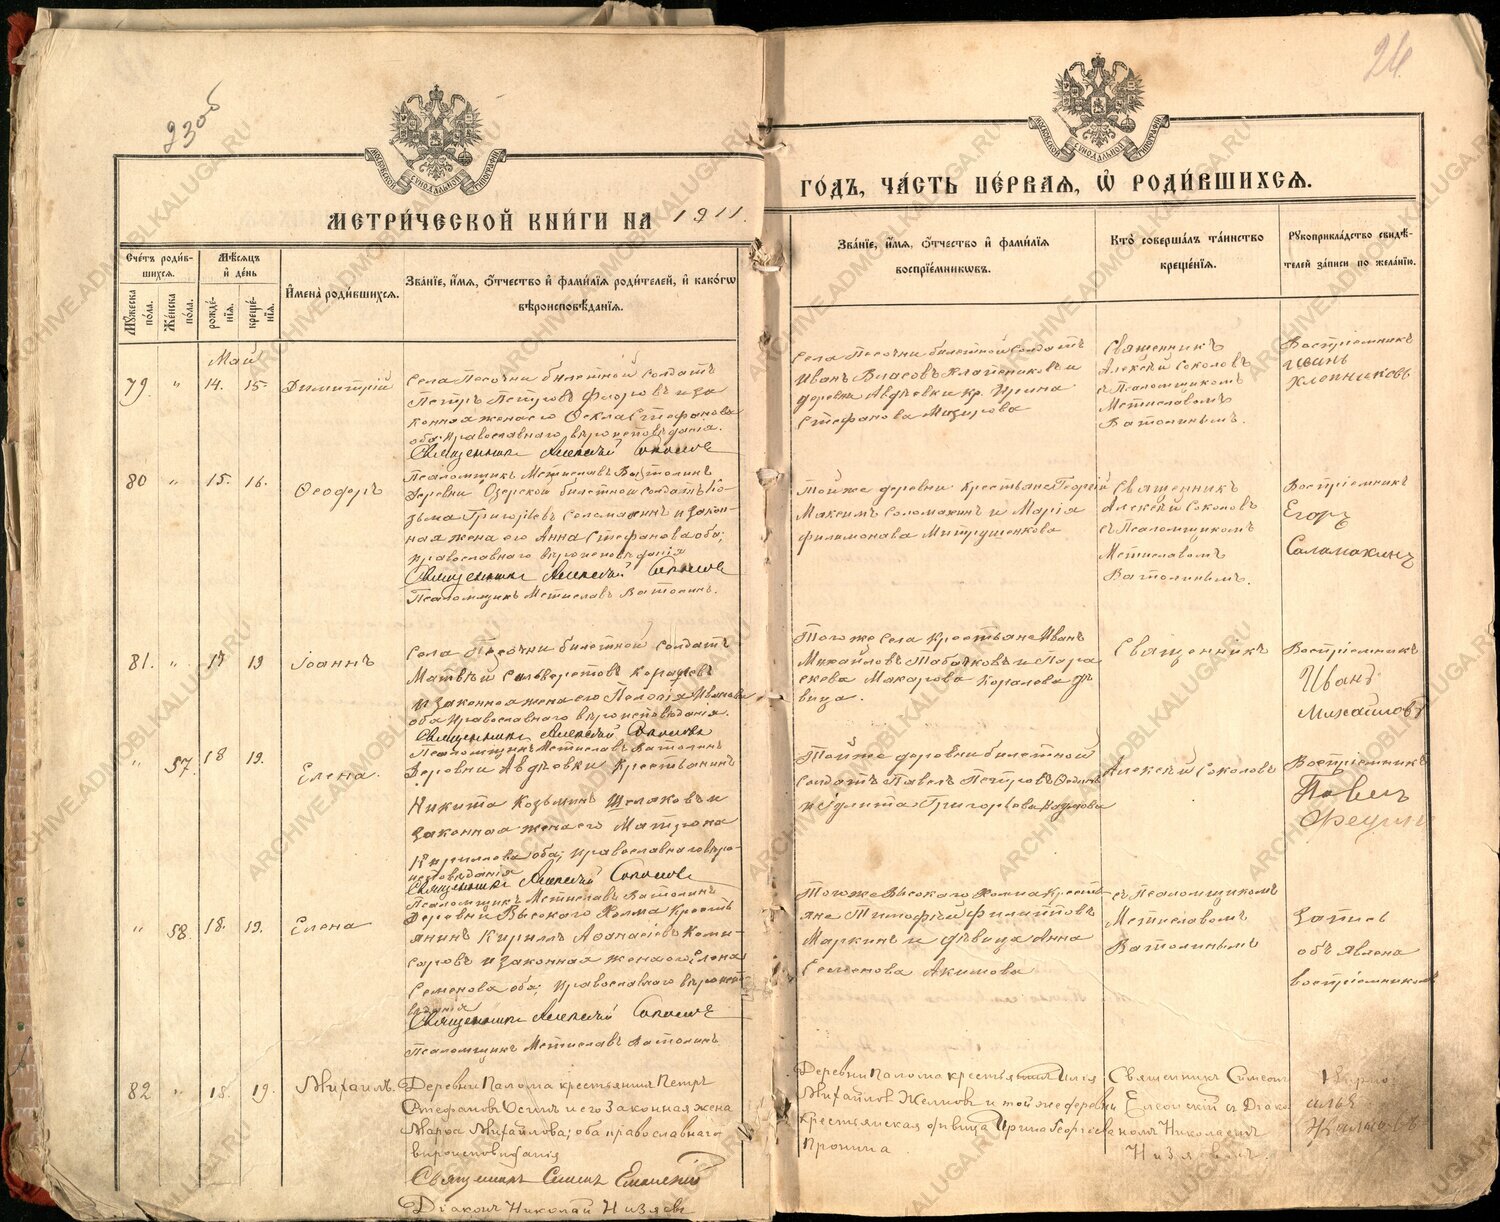 23об
24.
МОСКОВСКОЙ СѴНОДАЛЬНОЙ ТИПОГРАФІИ
МОСКОВСКОЙ СѴНОДАЛЬНОЙ ТИПОГРАФІИ
МЕТРИ́ЧЕСКОЙ КНИ́ГИ НА 1911.
ГО́ДЪ, ЧА́СТЬ ПЕ́РВАЯ, Ѽ РОДИ́ВШИХСѦ.
Сче́тъ роди́вшихсѧ.
Мѹ́жеска по́ла.
Же́нска по́ла.
Мѣ́сѧцъ и҆ де́нь
рожде́нїѧ.
креще́нїѧ.
И҆мена̀ роди́вшихсѧ.
Зва́нїе, и҆́мѧ, ѻ҆́тчество и҆ фами́лїѧ роди́телей, и҆ како́гѡ
вѣроисповѣ́данїѧ.
Зва́нїе, и҆́мѧ, ѻ҆́тчество и҆ фами́лїѧ
воспрїе́мникѡвъ.
Кто̀ соверша́лъ та́инство
креще́нїѧ.
Рѹкоприкла́дство свидѣ́телей за́писи по жела́нїю.
Май
79 " 14. 15. Димитрій
Села Песочни билетной солдатъ
Петръ Петровъ Фроловъ и за
конная жена его Ѳекла Стефанова
оба православнаго вѣроисповѣданія.
Священникъ Алексѣй Соколовъ
Псаломщикъ Мстиславъ Ватолинъ
Села Песочни билетной солдатъ
Иванъ Власовъ Клапениковъ и
деревни Авдѣевки кр. Ирина
Стефанова Мизирова
Священникъ
Алексѣй Соколовъ
съ Псаломщикомъ
Мстиславомъ
Ватолинымъ.
Воспріемникъ
Иванъ
Клепниковъ
80 " 15. 16. Ѳеодоръ
Деревни Озерской билетной солдатъ Ко-
зьма Григорьевъ Соломахинъ и закон-
ная жена его Анна Стефанова оба;
православнаго вѣроисповѣданія
Священникъ Алексѣй Соколовъ
Псаломщикъ Мстиславъ Ватолинъ.
Той же деревни крестьяне Георгій
Максимъ Соломахинъ и Марія
Филимонова Митрушенкова
Священникъ
Алексѣй Соколовъ
съ Псаломщикомъ
Мстиславомъ
Ватолинымъ.
Воспріемникъ
Егоръ
Саламахинъ
81. " 17 19 Іоаннъ
Села Песочни билетной солдатъ
Матвѣй Сильверстовъ Королевъ
и законная жена его Пелагія Иванова
оба православнаго вѣроисповѣданія.
Священникъ Алексѣй Соколовъ
Псаломщикъ Мстиславъ Ватолинъ
Того же села крестьяне Иванъ
Михайловъ Табачковъ и Пара
скева Макарова Королева дѣ
вица.
Священникъ
Воспріемникъ
Иванъ
Михайловъ
" 57. 18 19. Елена.
Деревни Авдѣевки крестьянинъ
Никита Козьминъ Шелаковъ и
законная жена его Матрона
Кириллова оба; православнаго вѣро-
исповѣданія
Священникъ Алексѣй Соколовъ
Псаломщикъ Мстиславъ Ватолинъ
Той же деревни билетной
солдатъ Павелъ Петровъ
и Григорьева
Алексѣй Соколовъ
Воспріемникъ
Павелъ
" 58. 18. 19. Елена
Деревни Высокаго Холма кресть
янинъ Кириллъ Аѳанасіевъ Коми-
саровъ и законная жена его Елена
Семенова оба; православнаго вѣроиспо
вѣданія
Священникъ Алексѣй Соколовъ
Псаломщикъ Мстиславъ Ватолинъ
Того же Высокаго Холма кресть
яне Тимоѳей Филипповъ
Маркинъ и дѣвица Анна
Семенова Акимова
съ Псаломщикомъ
Мстиславомъ
Ватолинымъ
Запись
объявлена
воспріемникомъ
82 " 18. 19. Михаилъ.
Деревни Палома крестьянинъ Петръ
Стефановъ и его законная жена
Мавра Михайлова; оба православнаго
вѣроисповѣданія
Священникъ
Діаконъ Николай Низяевъ
Деревни Палома крестьянинъ Илія
Михайловъ Желтовъ и той же деревни
крестьянская дѣвица Ирина Георгіева
Пронина
Священникъ Симеонъ
съ Діако
номъ Николаемъ
Низяевымъ.
Илья